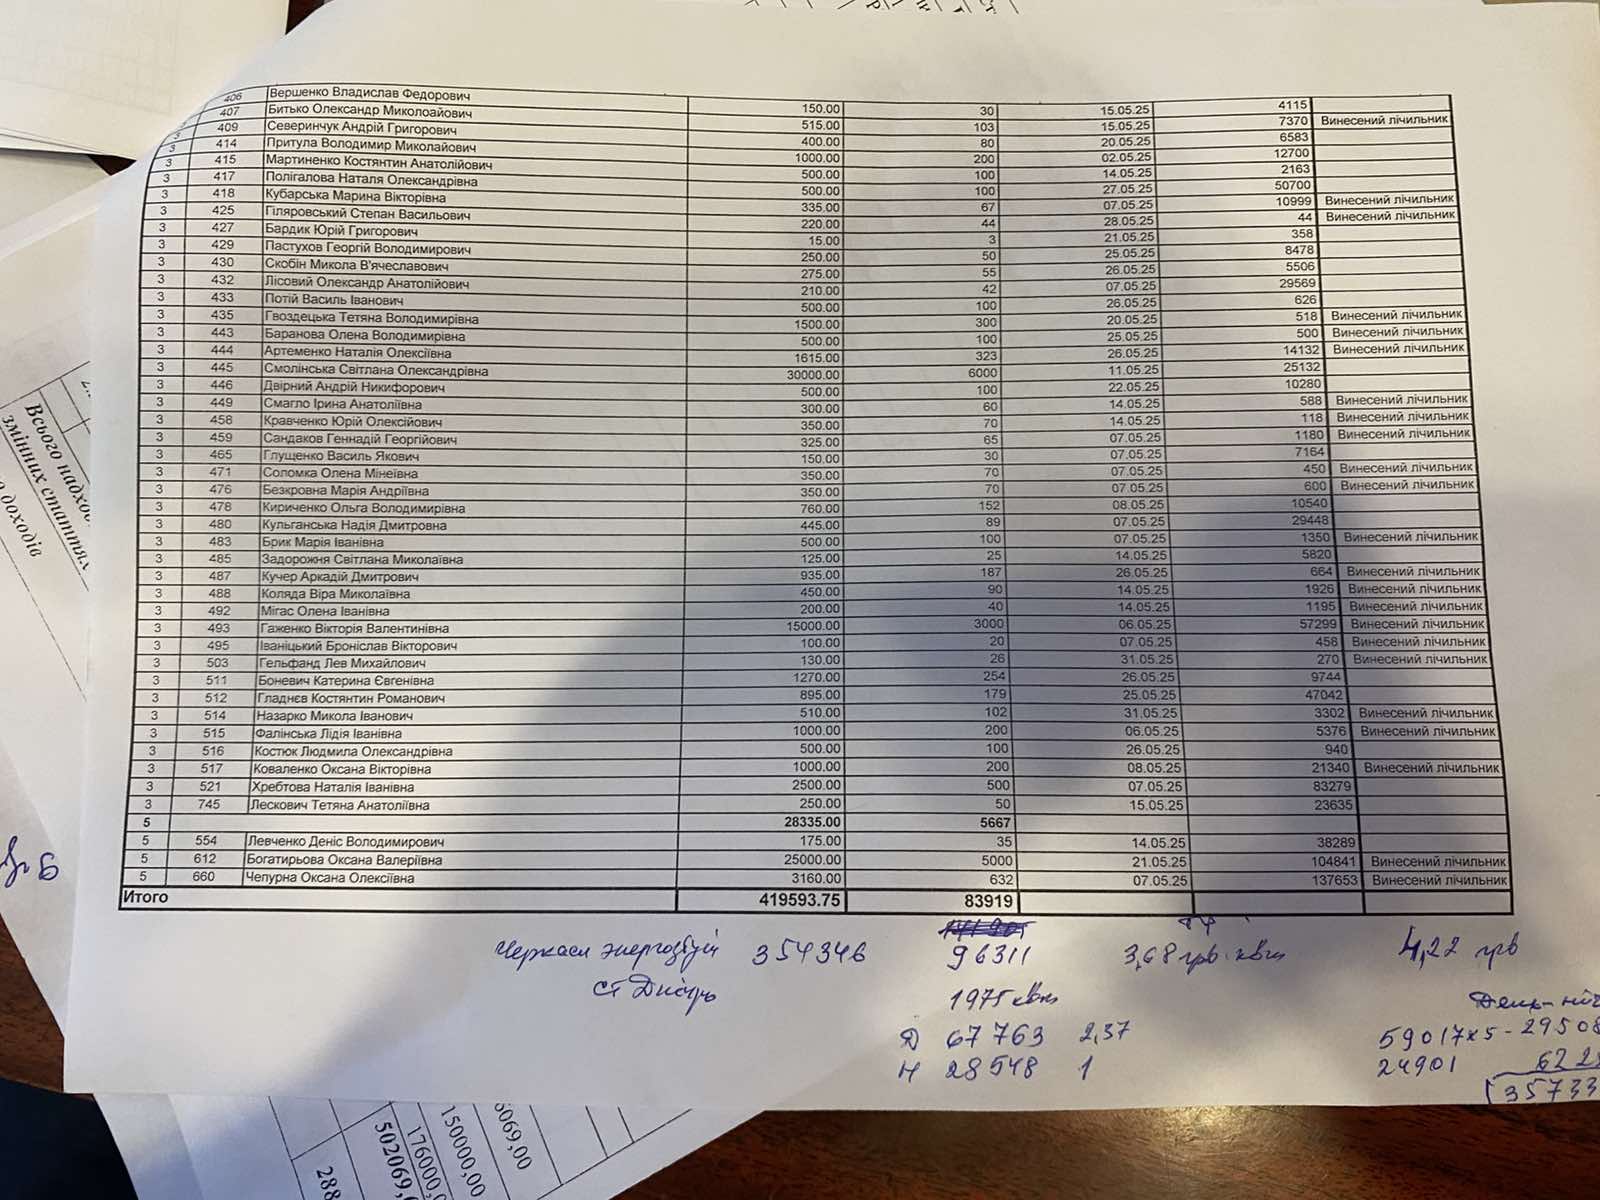 406 Вершенко Владислав Федорович 150.00 30 15.05.25 4115
3 407 Битько Олександр Миколоайович 515.00 103 15.05.25 7370 Винесений лічильник
3 409 Северинчук Андрій Григорович 400.00 80 20.05.25 6583
3 414 Притула Володимир Миколайович 1000.00 200 02.05.25 12700
3 415 Мартиненко Костянтин Анатолійович 500.00 100 14.05.25 2163
3 417 Полігалова Наталя Олександрівна 500.00 100 27.05.25 50700
3 418 Кубарська Марина Вікторівна 335.00 67 07.05.25 10999 Винесений лічильник
3 425 Гіляровський Степан Васильович 220.00 44 28.05.25 44 Винесений лічильник
3 427 Бардик Юрій Григорович 15.00 3 21.05.25 358
3 429 Пастухов Георгій Володимирович 250.00 50 25.05.25 8478
3 430 Скобін Микола В'ячеславович 275.00 55 26.05.25 5506
3 432 Лісовий Олександр Анатолійович 210.00 42 07.05.25 29569
3 433 Потій Василь Іванович 500.00 100 26.05.25 626
3 435 Гвоздецька Тетяна Володимирівна 1500.00 300 20.05.25 518 Винесений лічильник
3 443 Баранова Олена Володимирівна 500.00 100 25.05.25 500 Винесений лічильник
3 444 Артеменко Наталія Олексіївна 1615.00 323 26.05.25 14132 Винесений лічильник
3 445 Смолінська Світлана Олександрівна 30000.00 6000 11.05.25 25132
3 446 Двірний Андрій Никифорович 500.00 100 22.05.25 10280
3 449 Смагло Ірина Анатоліївна 300.00 60 14.05.25 588 Винесений лічильник
3 458 Кравченко Юрій Олексійович 350.00 70 14.05.25 118 Винесений лічильник
3 459 Сандаков Геннадій Георгійович 325.00 65 07.05.25 1180 Винесений лічильник
3 465 Глущенко Василь Якович 150.00 30 07.05.25 7164
3 471 Соломка Олена Мінеївна 350.00 70 07.05.25 450 Винесений лічильник
3 476 Безкровна Марія Андріївна 350.00 70 07.05.25 600 Винесений лічильник
3 478 Кириченко Ольга Володимирівна 760.00 152 08.05.25 10540
3 480 Кульганська Надія Дмитровна 445.00 89 07.05.25 29448
3 483 Брик Марія Іванівна 500.00 100 07.05.25 1350 Винесений лічильник
3 485 Задорожня Світлана Миколаївна 125.00 25 14.05.25 5820
3 487 Кучер Аркадій Дмитрович 935.00 187 26.05.25 664 Винесений лічильник
3 488 Коляда Віра Миколаївна 450.00 90 14.05.25 1926 Винесений лічильник
3 492 Мігас Олена Іванівна 200.00 40 14.05.25 1195 Винесений лічильник
3 493 Гаженко Вікторія Валентинівна 15000.00 3000 06.05.25 57299 Винесений лічильник
3 495 Іваніцький Броніслав Вікторович 100.00 20 07.05.25 458 Винесений лічильник
3 503 Гельфанд Лев Михайлович 130.00 26 31.05.25 270 Винесений лічильник
3 511 Боневич Катерина Євгенівна 1270.00 254 26.05.25 9744
3 512 Гладнєв Костянтин Романович 895.00 179 25.05.25 47042
3 514 Назарко Микола Іванович 510.00 102 31.05.25 3302 Винесений лічильник
3 515 Фалінська Лідія Іванівна 1000.00 200 06.05.25 5376 Винесений лічильник
3 516 Костюк Людмила Олександрівна 500.00 100 26.05.25 940
3 517 Коваленко Оксана Вікторівна 1000.00 200 08.05.25 21340 Винесений лічильник
3 521 Хребтова Наталія Іванівна 2500.00 500 07.05.25 83279
3 745 Лескович Тетяна Анатоліївна 250.00 50 15.05.25 23635
5 28335.00 5667
5 554 Левченко Деніс Володимирович 175.00 35 14.05.25 38289
5 612 Богатирьова Оксана Валеріївна 25000.00 5000 21.05.25 104841 Винесений лічильник
5 660 Чепурна Оксана Олексіївна 3160.00 632 07.05.25 137653 Винесений лічильник
Итого 419593.75 83919
Черкаси энергозбут 354346 96311 3,68 грв. квт 4,22 грв
ст Дніпрь 1975 квт
Д 67763 2,37 59017x5-29508
Н 28548 1 24901
35733
Всього надхо
змінних стаття
доходів
6069,00
150000,00
176000,
502069,
288